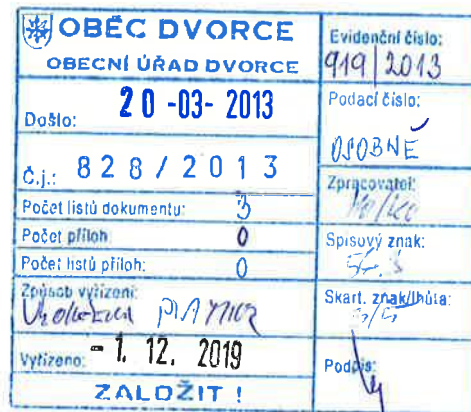 OBEC DVORCE
OBECNÍ ÚŘAD DVORCE
Došlo: 20 -03- 2013
Č.j.: 828/2013
Počet listů dokumentu: 3
Počet příloh 0
Počet listů příloh: 0
Způsob vyřízení:
Vyřízeno: - 1. 12. 2019
ZALOŽIT !
Evidenční číslo:
919/2013
Podací číslo:
OSOBNĚ
Zpracovatel:
Spisový znak:
Skart. znak/lhůta:
Podpis: